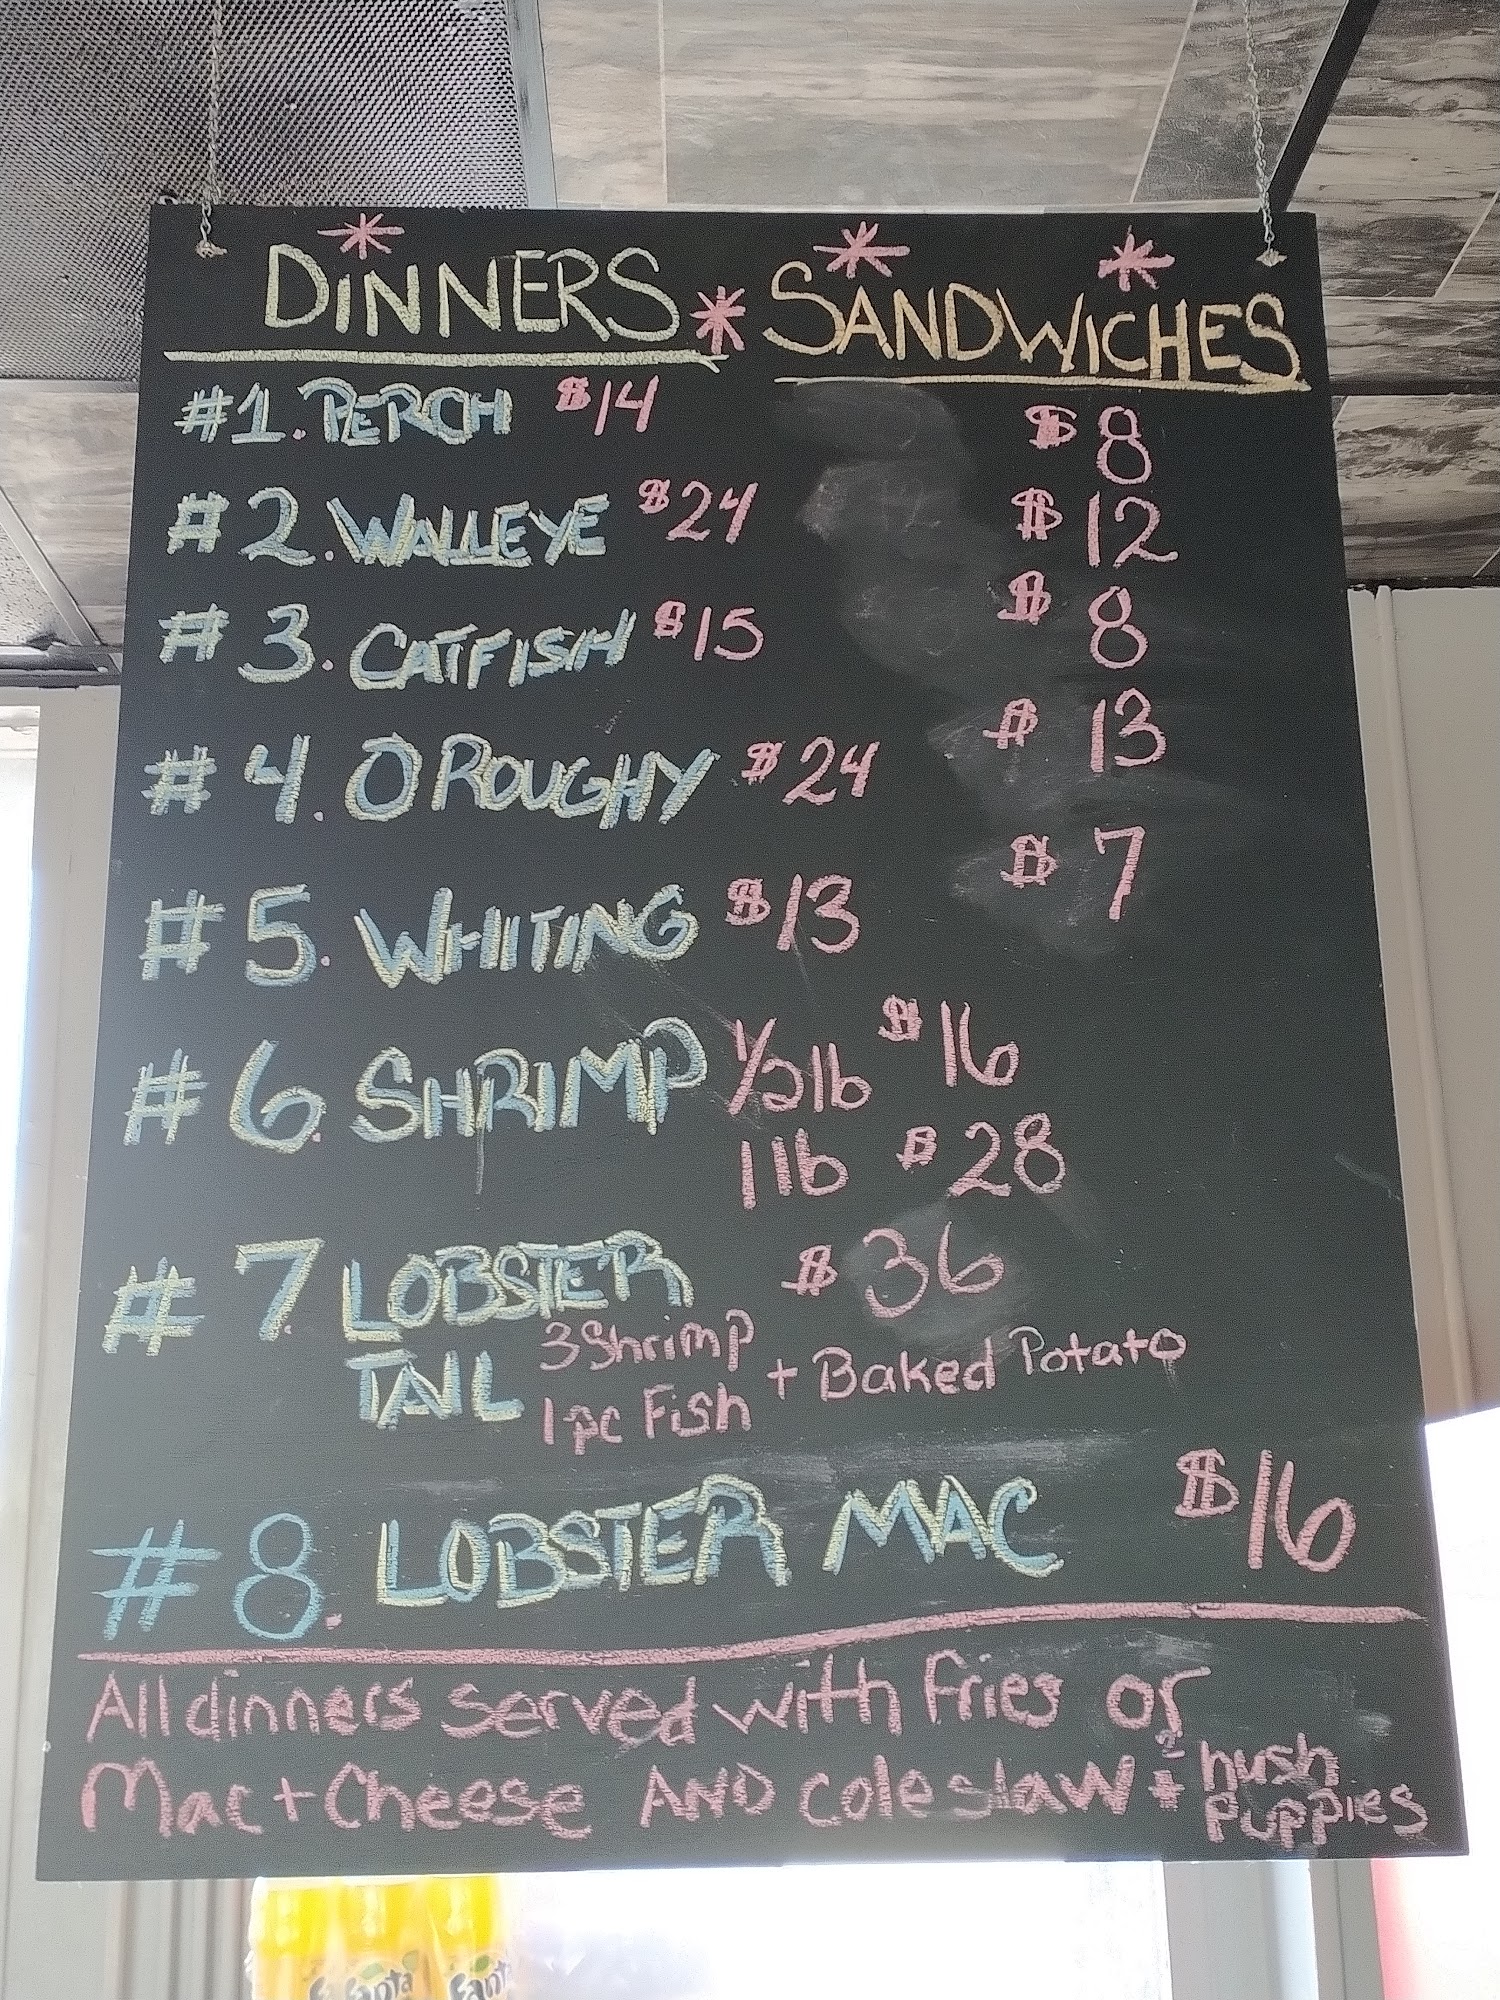 DINNERS * SANDWICHES
#1. PERCH $14 $8
#2. WALLEYE $24 $12
#3. CATFISH $15 $8
#4. O ROUGHY $24 $13
#5. WHITING $13 $7
#6. SHRIMP 1/2 lb $16
1 lb $28
#7. LOBSTER $36
TAIL 3 Shrimp
1 pc Fish + Baked Potato
#8. LOBSTER MAC $16
All dinners served with fries or
Mac + Cheese AND coleslaw + 2 hush
puppies
Fanta